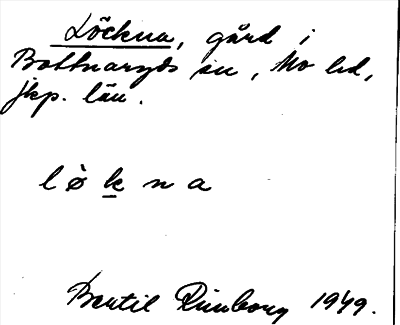 Löckna, gård i
Bottnaryds sn, Mo hd,
jkp. län.
l ø̀ k n a
Bertil Rimborg 1949.